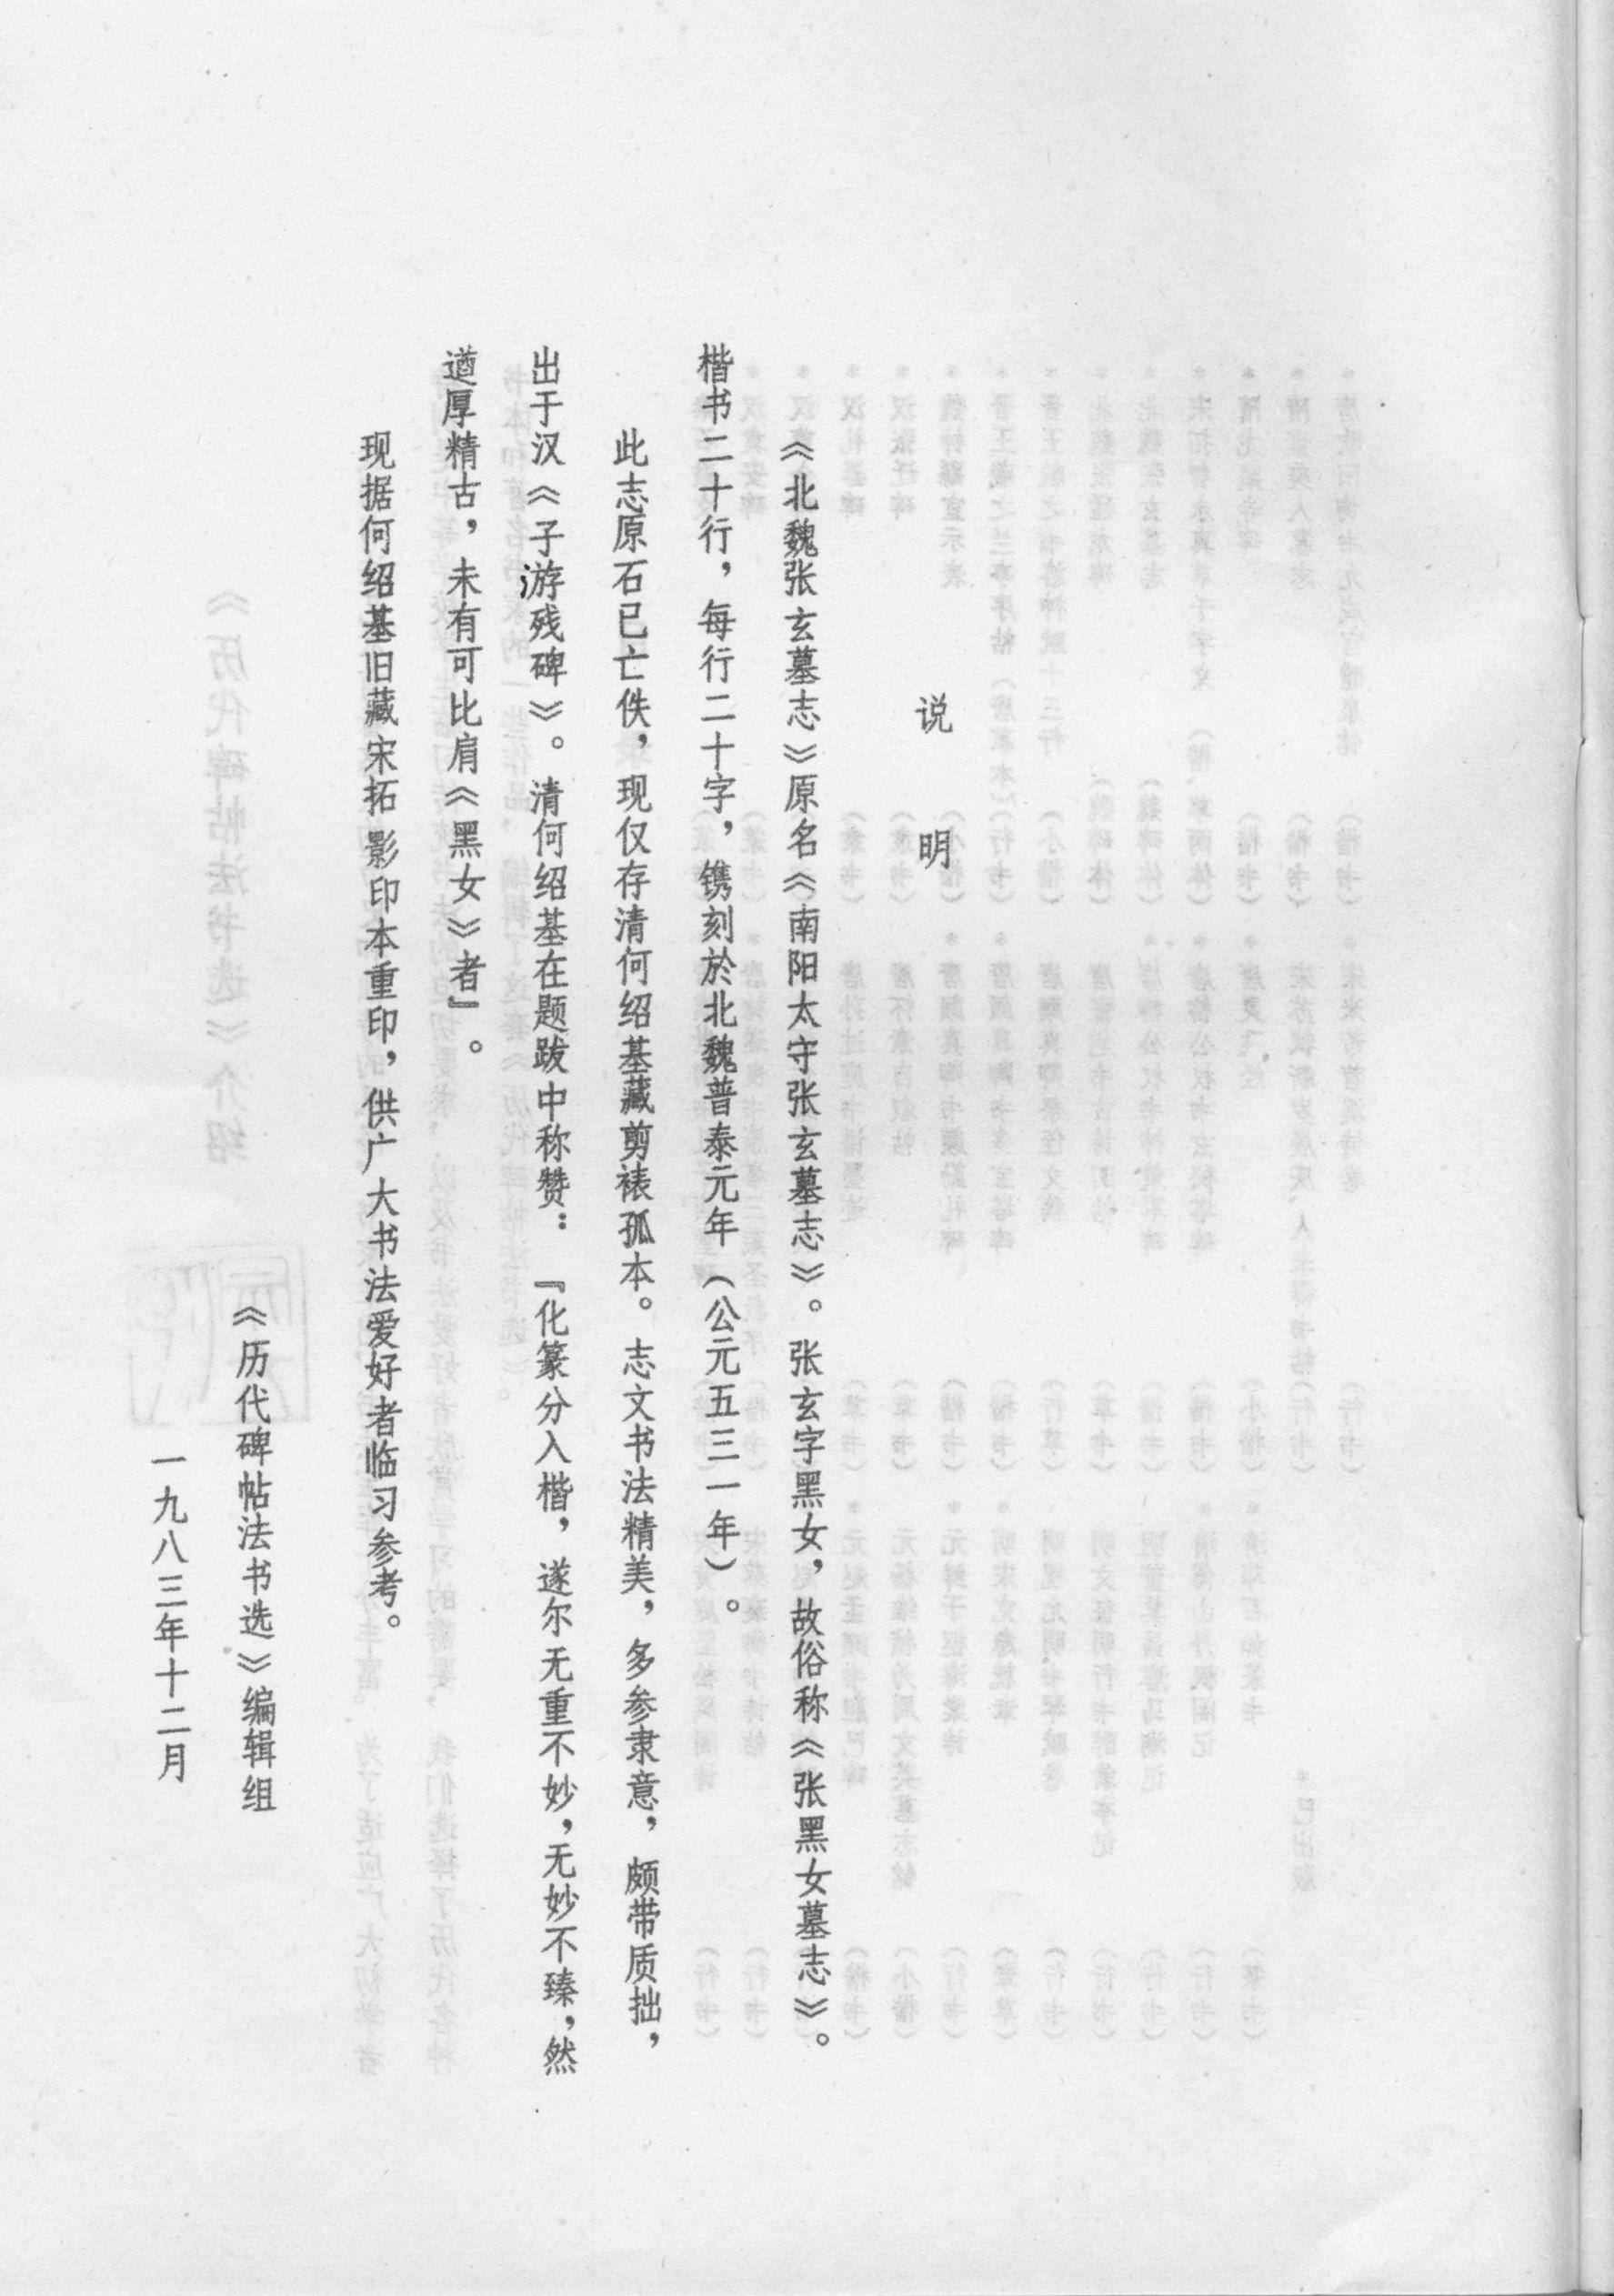 说明
《北魏张玄墓志》原名《南阳太守张玄墓志》。张玄字黑女，故俗称《张黑女墓志》。
楷书二十行，每行二十字，镌刻於北魏普泰元年（公元五三一年）。
此志原石已亡佚，现仅存清何绍基藏剪裱孤本。志文书法精美，多参隶意，颇带质拙，
出于汉《子游残碑》。清何绍基在题跋中称赞：『化篆分入楷，遂尔无重不妙，无妙不臻，然
遒厚精古，未有可比肩《黑女》者』。
现据何绍基旧藏宋拓影印本重印，供广大书法爱好者临习参考。
《历代碑帖法书选》编辑组
一九八三年十二月